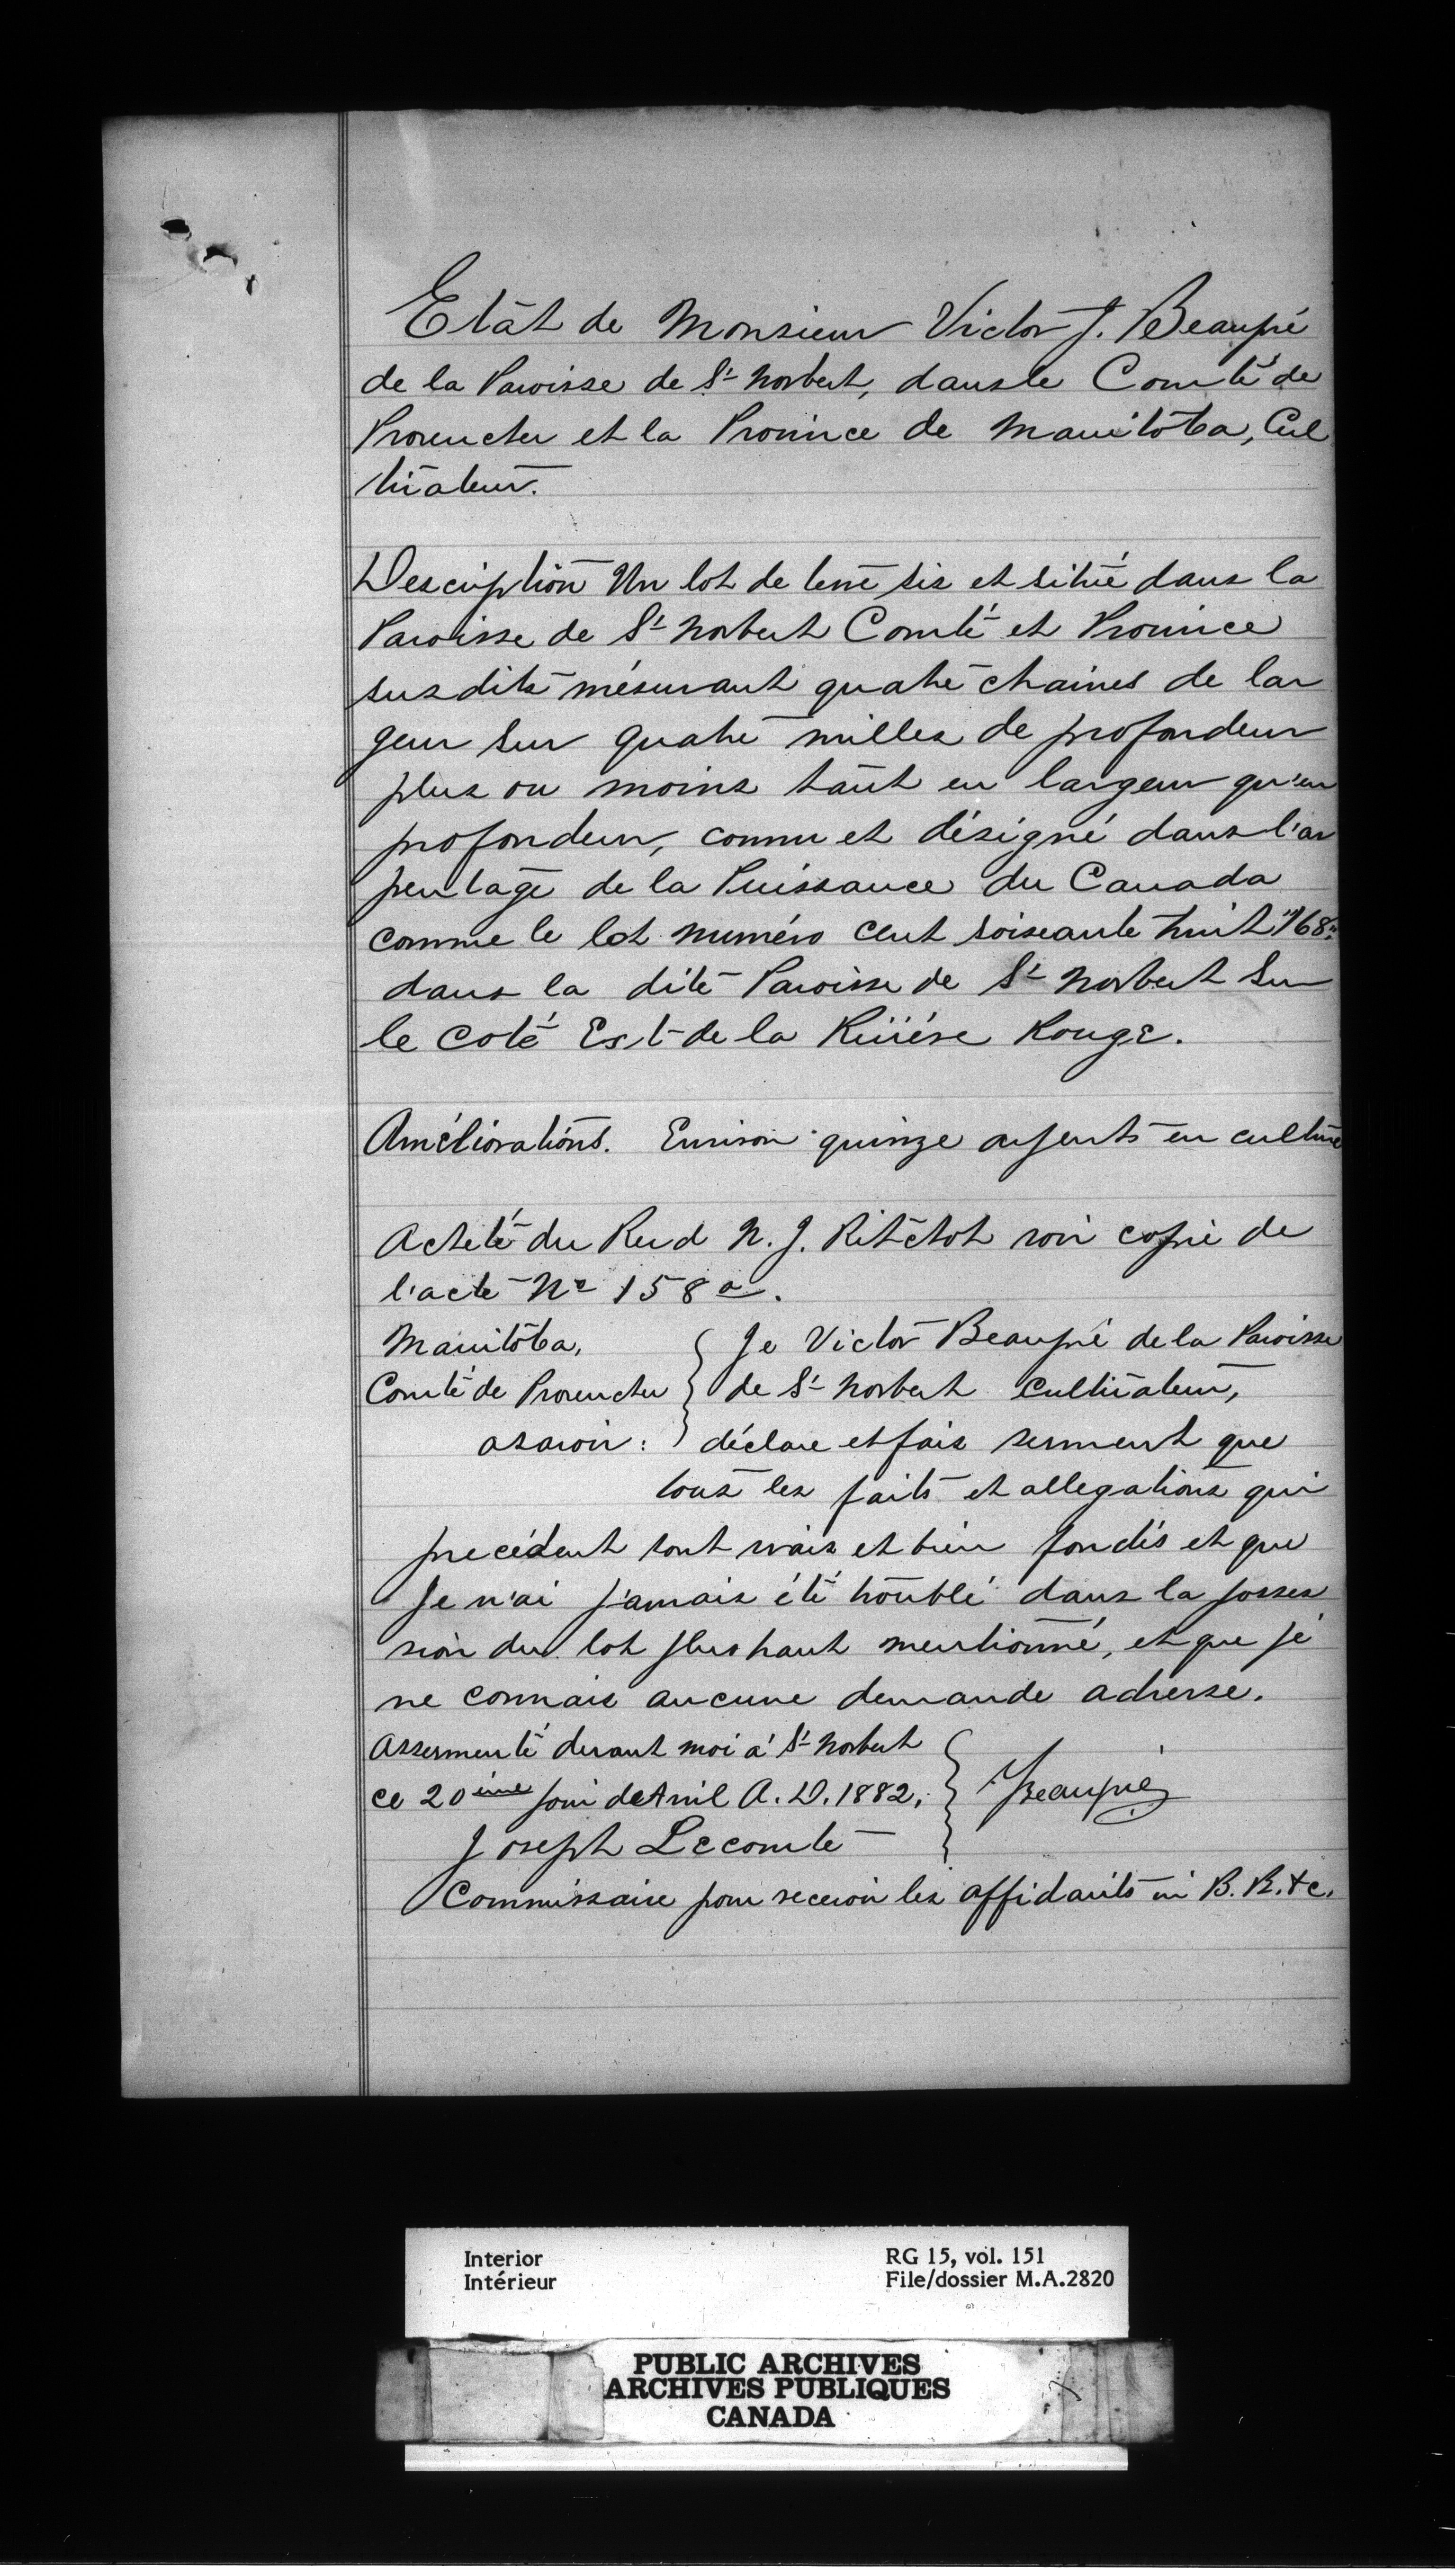 Etat de Monsieur Victor J. Beaupré
de la Paroisse de St Norbert, dans le Comté de
Provencher et la Province de Manitoba, Cul
tivateur.
Description Un lot de terre sis et situé dans la
Paroisse de St Norbert Comté et Province
susdits mésurant quatre chaines de lar
geur sur quatre milles de profondeur
plus ou moins tant en largeur qu'en
profondeur, connu et désigné dans l'ar
pentage de la Puissance du Canada
comme le lot numéro cent soiseante huit "168"
dans la dite Paroisse de St Norbert sur
le coté Est de la Rivière Rouge.
Améliorations. Environ quinze arpents en culture
Acheté du Revd N. J. Ritchot voir copie de
l'acte No 158a.
Manitoba, } Je Victor Beaupré de la Paroisse
Comté de Provencher } de St Norbert Cultivateur,
asavoir: } déclare et fais serment que
tous les faits et allegations qui
precédent sont vrais et bien fondés et que
Je n'ai jamais été troublé dans la posses
sion du lot plus haut mentionné, et que je
ne connais aucune demande adverse.
Assermenté devant moi à St Norbert
ce 20ième jour de Avril A. D. 1882, } VBeaupré
Joseph Lecomte
Commissaire pour recevoir les affidavits in B. R. &c.
Interior
Intérieur
RG 15, vol. 151
File/dossier M.A.2820
PUBLIC ARCHIVES
ARCHIVES PUBLIQUES
CANADA